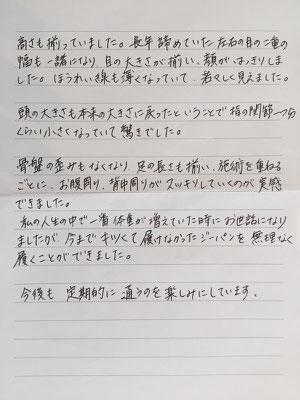 高さも揃っていました。長年諦めていた左右の目の二重の
幅も一緒になり、目の大きさが揃い、顔がはっきりしま
した。ほうれい線も薄くなっていて、若々しく見えました。
頭の大きさも本来の大きさに戻ったということで指の関節一つ分
くらい小さくなっていて驚きでした。
骨盤の歪みもなくなり、足の長さも揃い、施術を重ねる
ごとに、お腹周り、背中周りがスッキリしていくのが実感
できました。
私の人生の中で一番体重が増えていた時にお世話になり
ましたが、今までキツくて履けなかったジーパンを無理なく
履くことができました。
今後も定期的に通うのを楽しみにしています。